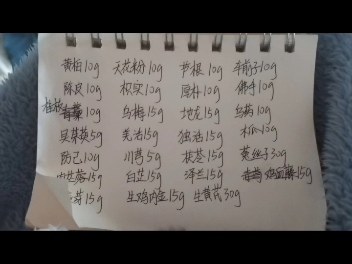 黄柏10g 天花粉10g 芦根10g 车前子10g
陈皮10g 枳实10g 厚朴10g 佛手10g
桂枝10g 乌梅15g 地龙15g 乌药10g
吴茱萸5g 羌活15g 独活15g 木瓜10g
防己10g 川芎5g 茯苓15g 菟丝子30g
肉苁蓉15g 白芷15g 泽兰15g 鸡血藤15g
15g 生鸡内金15g 生黄芪30g